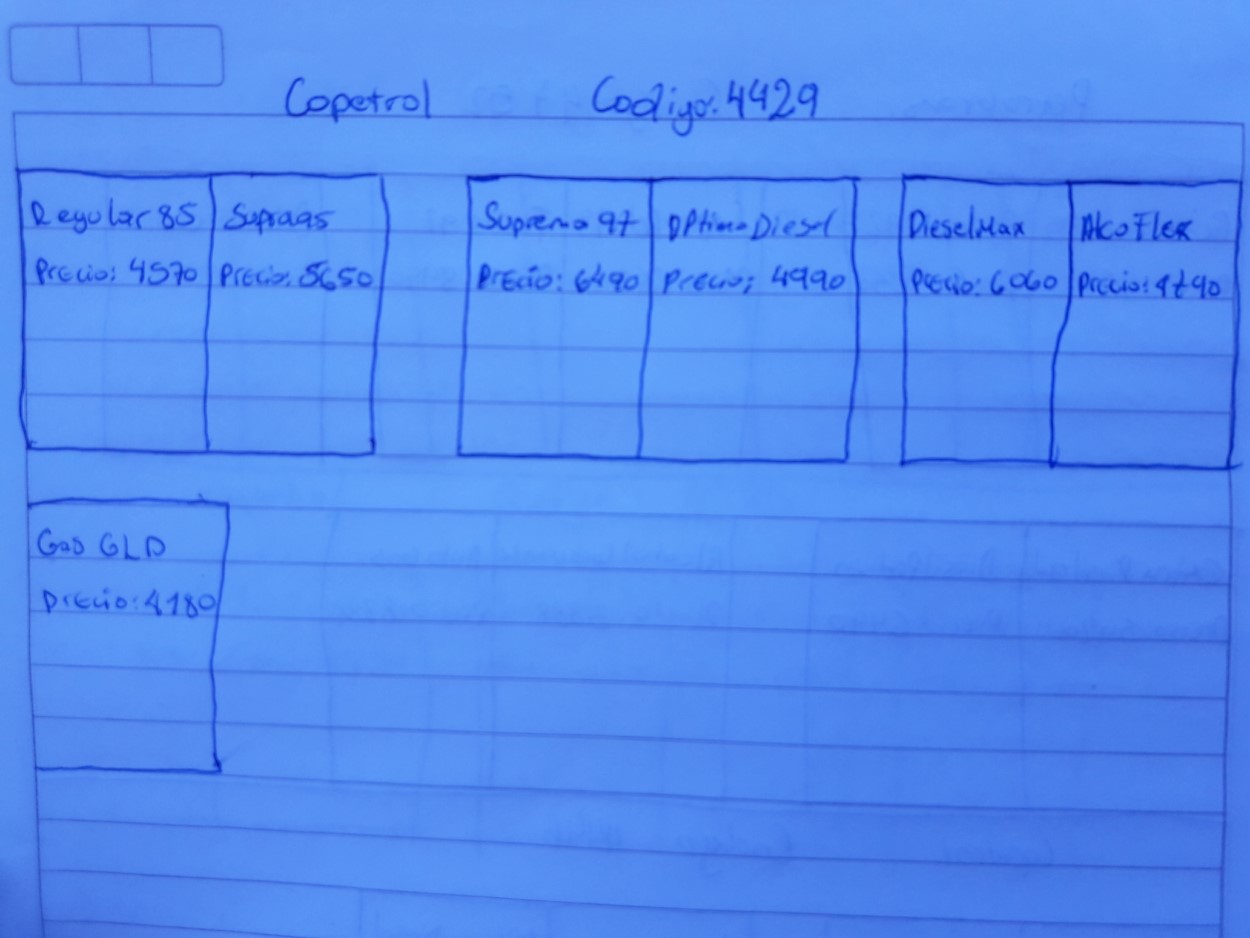 Copetrol Codigo: 4429
Regular 85 Supra95 Suprema 97 OPtimo Diesel DieselMax AlcoFlex
Precio: 4570 Precio: 5650 Precio: 6490 Precio: 4990 Precio: 6060 Precio: 4790
Gas GLP
Precio: 4180